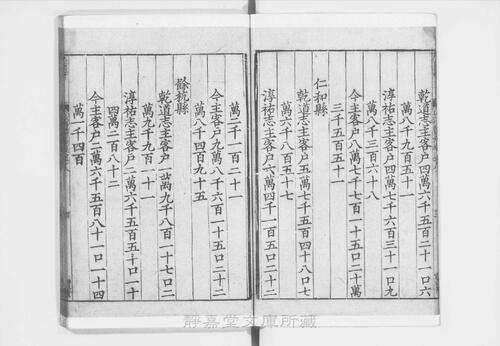 乾道志主客户四萬六千五百二十一口六
萬八千九百五十一
淳祐志主客户四萬七千六百三十一口九
萬八千三百六十八
今主客户八萬七千七百一十五口二十萬
三千五百五十一
仁和縣
乾道志主客户五萬七千五百四十八口七
萬六千八百五十七
淳祐志主客户六萬四千一百五口二十二
萬二千一百二十一
今主客户九萬八千六百一十五口二十二
萬八千四百九十五
餘杭縣
乾道志主客户一萬九千八百一十七口二
萬九千九百一十一
淳祐志主客户二萬六千五百五十口一十
四萬二百八十二
今主客户二萬六千五百八十一口一十四
萬一千四百
靜嘉堂文庫所藏